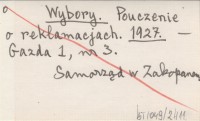 Wybory. Pouczenie
o reklamacjach. 1927. —
Gazda 1, nr 3.
Samorząd w Zakopanem